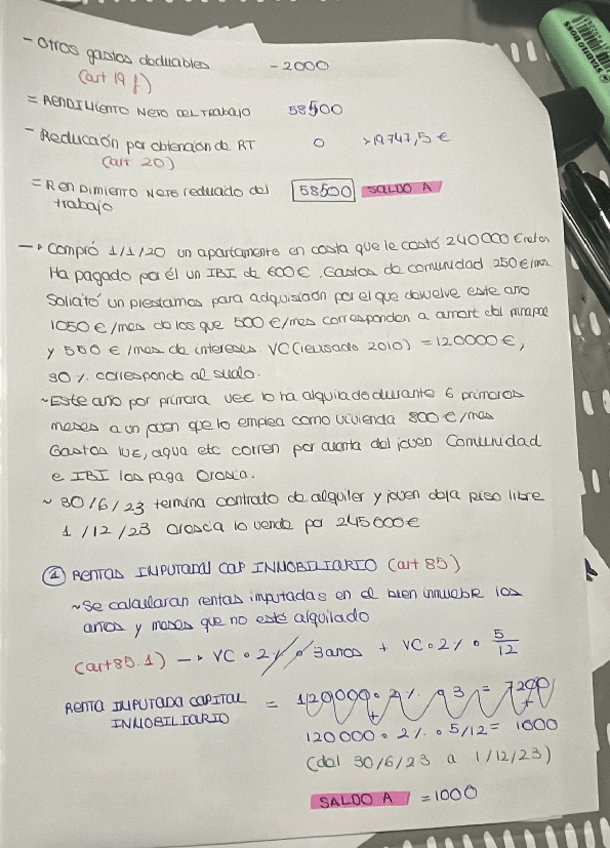 - Otros gastos deducibles -2000
(art 19 f)
= RENDIMIENTO NETO DEL TRABAJO 58500
- Reducción por obtención de RT 0 >19747,5 €
(art 20)
= RENDIMIENTO NETO reducido del trabajo 58500 SALDO A
→ Compró 1/1/20 un apartamento en costa que le costó 240000 €
Ha pagado por él un IBI de 600 €. Gastos de comunidad 250 €/mes
Solicitó un prestamos para adquisición por el que devuelve este año
1050 €/mes de los que 500 €/mes corresponden a amort del principal
y 550 €/mes de intereses. VC (revisado 2010) = 120000 €,
30 % corresponde al suelo.
~ Este año por primera vez lo ha alquilado durante 6 primeros
meses a un joven que lo emplea como vivienda 800 €/mes
Gastos luz, agua etc corren por cuenta del joven Comunidad
e IBI los paga
~ 30/6/23 termina contrato de alquiler y joven deja piso libre
1/12/23 lo vende por 245000 €
② RENTAS IMPUTADAS CAP INMOBILIARIO (art 85)
~ Se calcularan rentas imputadas en el bien inmueble los
años y meses que no esté alquilado
(art 85.1) → VC · 2% · 3 años + VC · 2% · 5/12
RENTA IMPUTADA CAPITAL INMOBILIARIO = 120000 · 2% · 3 = 7200
+
120000 · 2% · 5/12 = 1000
(del 30/6/23 a 1/12/23)
SALDO A = 1000
STABILO BOSS